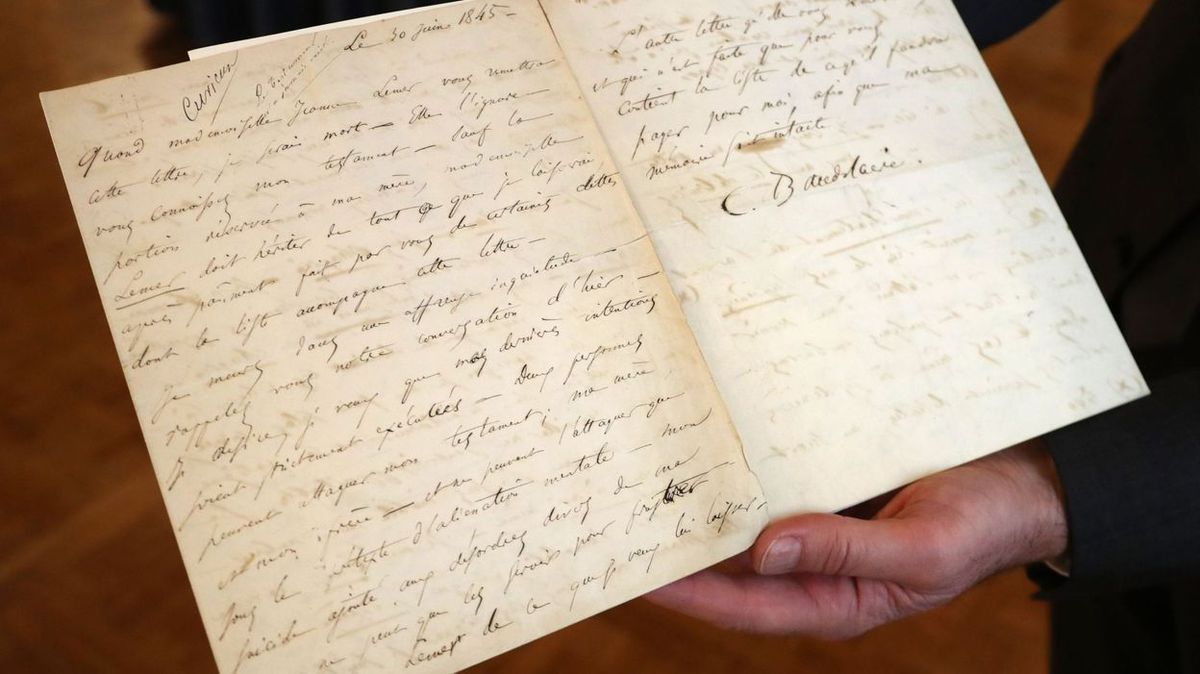 Curieux
Le 30 juin 1845 —
Quand mademoiselle Jeanne Lemer vous remettra
cette lettre, je serai mort — Elle l'ignore
vous connaissez mon testament — Sauf la
portion réservée à ma mère, mademoiselle
Lemer doit hériter de tout ce que je laisserai
après paiment fait par vous de certaines dettes
dont la liste accompagne cette lettre —
Je meurs dans une affreuse inquiétude —
rappelez vous notre conversation d'hier —
Je désire, je veux que mes dernières intentions
soient strictement exécutées — Deux personnes
peuvent attaquer mon testament; ma mère
et mon frère — et ne peuvent l'attaquer que
sous le prétexte d'aliénation mentale — mon
suicide ajouté aux désordres divers de ma
ne peut que les servir pour frustrer
Lemer de ce que je veux lui laisser —
l'autre lettre qu'elle vous
et qui n'est faite que pour vous
contient la liste de ce qu'il faudra
payer pour moi, afin que ma
mémoire soit intacte.
C. Baudelaire.